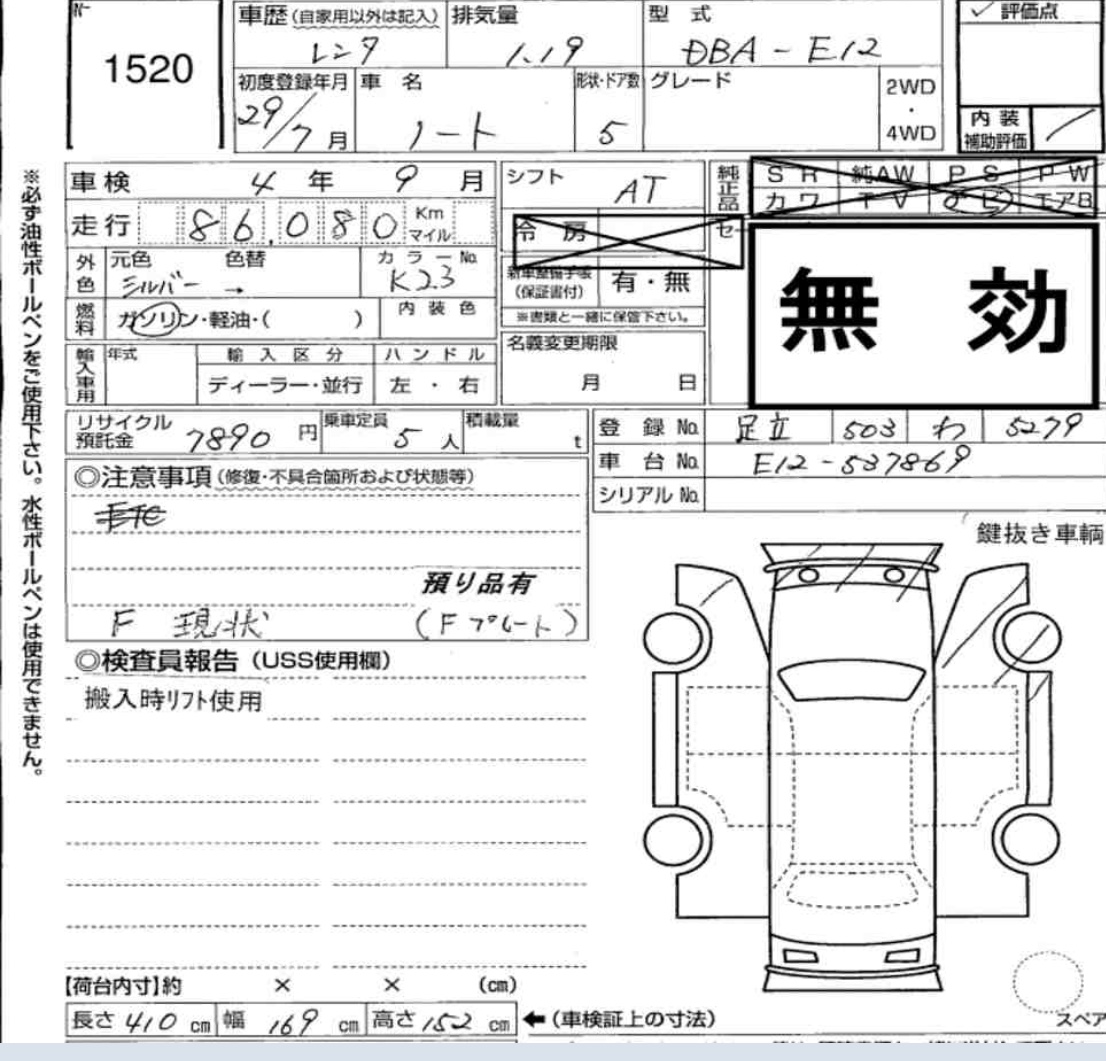 1520
車歴(自家用以外は記入) 排気量 型式 評価点
レンタ 1.19 DBA-E12
初度登録年月 車名 形状・ドア数 グレード 2WD・4WD
29/7月 ノート 5
内装補助評価
※必ず油性ボールペンをご使用下さい。水性ボールペンは使用できません。
車検 4年 9月 シフト AT 純正品 SR 純AW PS PW
カワ TV ナビ エアB
走行 86,080 Km マイル 冷房 セー
外色 元色 色替 カラーNo.
シルバー → K23
新車整備手帳(保証書付) 有・無
※書類と一緒に保管下さい。
無効
燃料 ガソリン・軽油・( ) 内装色
輸入車用 年式 輸入区分 ハンドル 名義変更期限
ディーラー・並行 左・右 月 日
リサイクル預託金 7890円 乗車定員 5人 積載量 t
登録No. 足立 503 わ 5279
車台No. E12-537869
シリアルNo.
◎注意事項(修復・不具合箇所および状態等)
ETC
預り品有
F 現状 (Fプレート)
鍵抜き車輌
◎検査員報告(USS使用欄)
搬入時リフト使用
【荷台内寸】約 × × (cm)
長さ 410 cm 幅 169 cm 高さ 152 cm ←(車検証上の寸法)
スペア